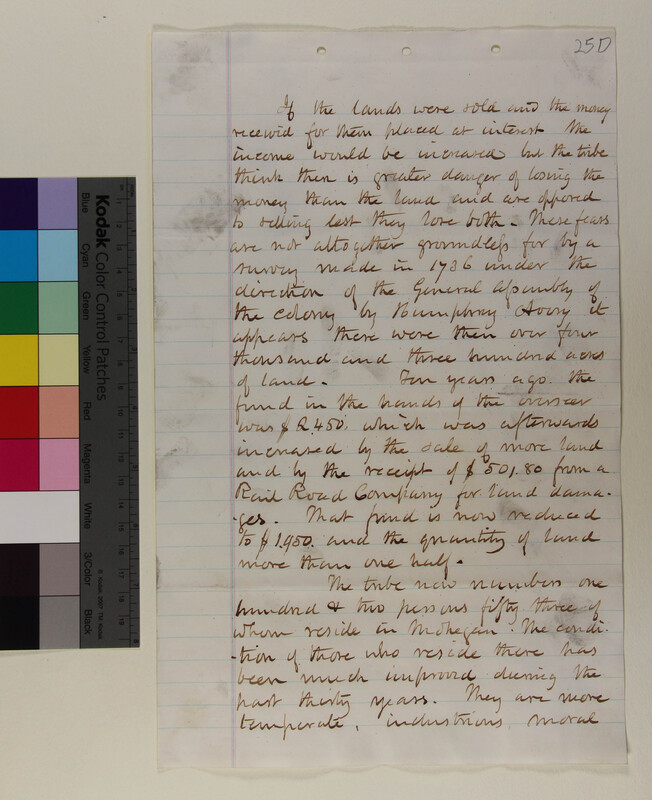 25D
If the lands were sold and the money
received for them placed at interest the
income would be increased but the tribe
think there is greater danger of losing the
money than the land and are opposed
to selling lest they lose both. These fears
are not altogether groundless for by a
survey made in 1736 under the
direction of the General Assembly of
the colony by Humphrey Avery it
appears there were then over four
thousand and three hundred acres
of land. Ten years ago the
fund in the hands of the overseer
was $2.450. which was afterwards
increased by the sale of more land
and by the receipt of $501.80 from a
Rail Road Company for land dama-
-ges. That fund is now reduced
to $1,950. and the quantity of land
more than one half.
The tribe now numbers one
hundred & two persons fifty three of
whom reside in Mohegan. The condi-
-tion of those who reside there has
been much improved during the
past thirty years. They are more
temperate, industrious, moral
Kodak Color Control Patches
Blue
Cyan
Green
Yellow
Red
Magenta
White
3/Color
Black
© Kodak, 2007 TM: Kodak